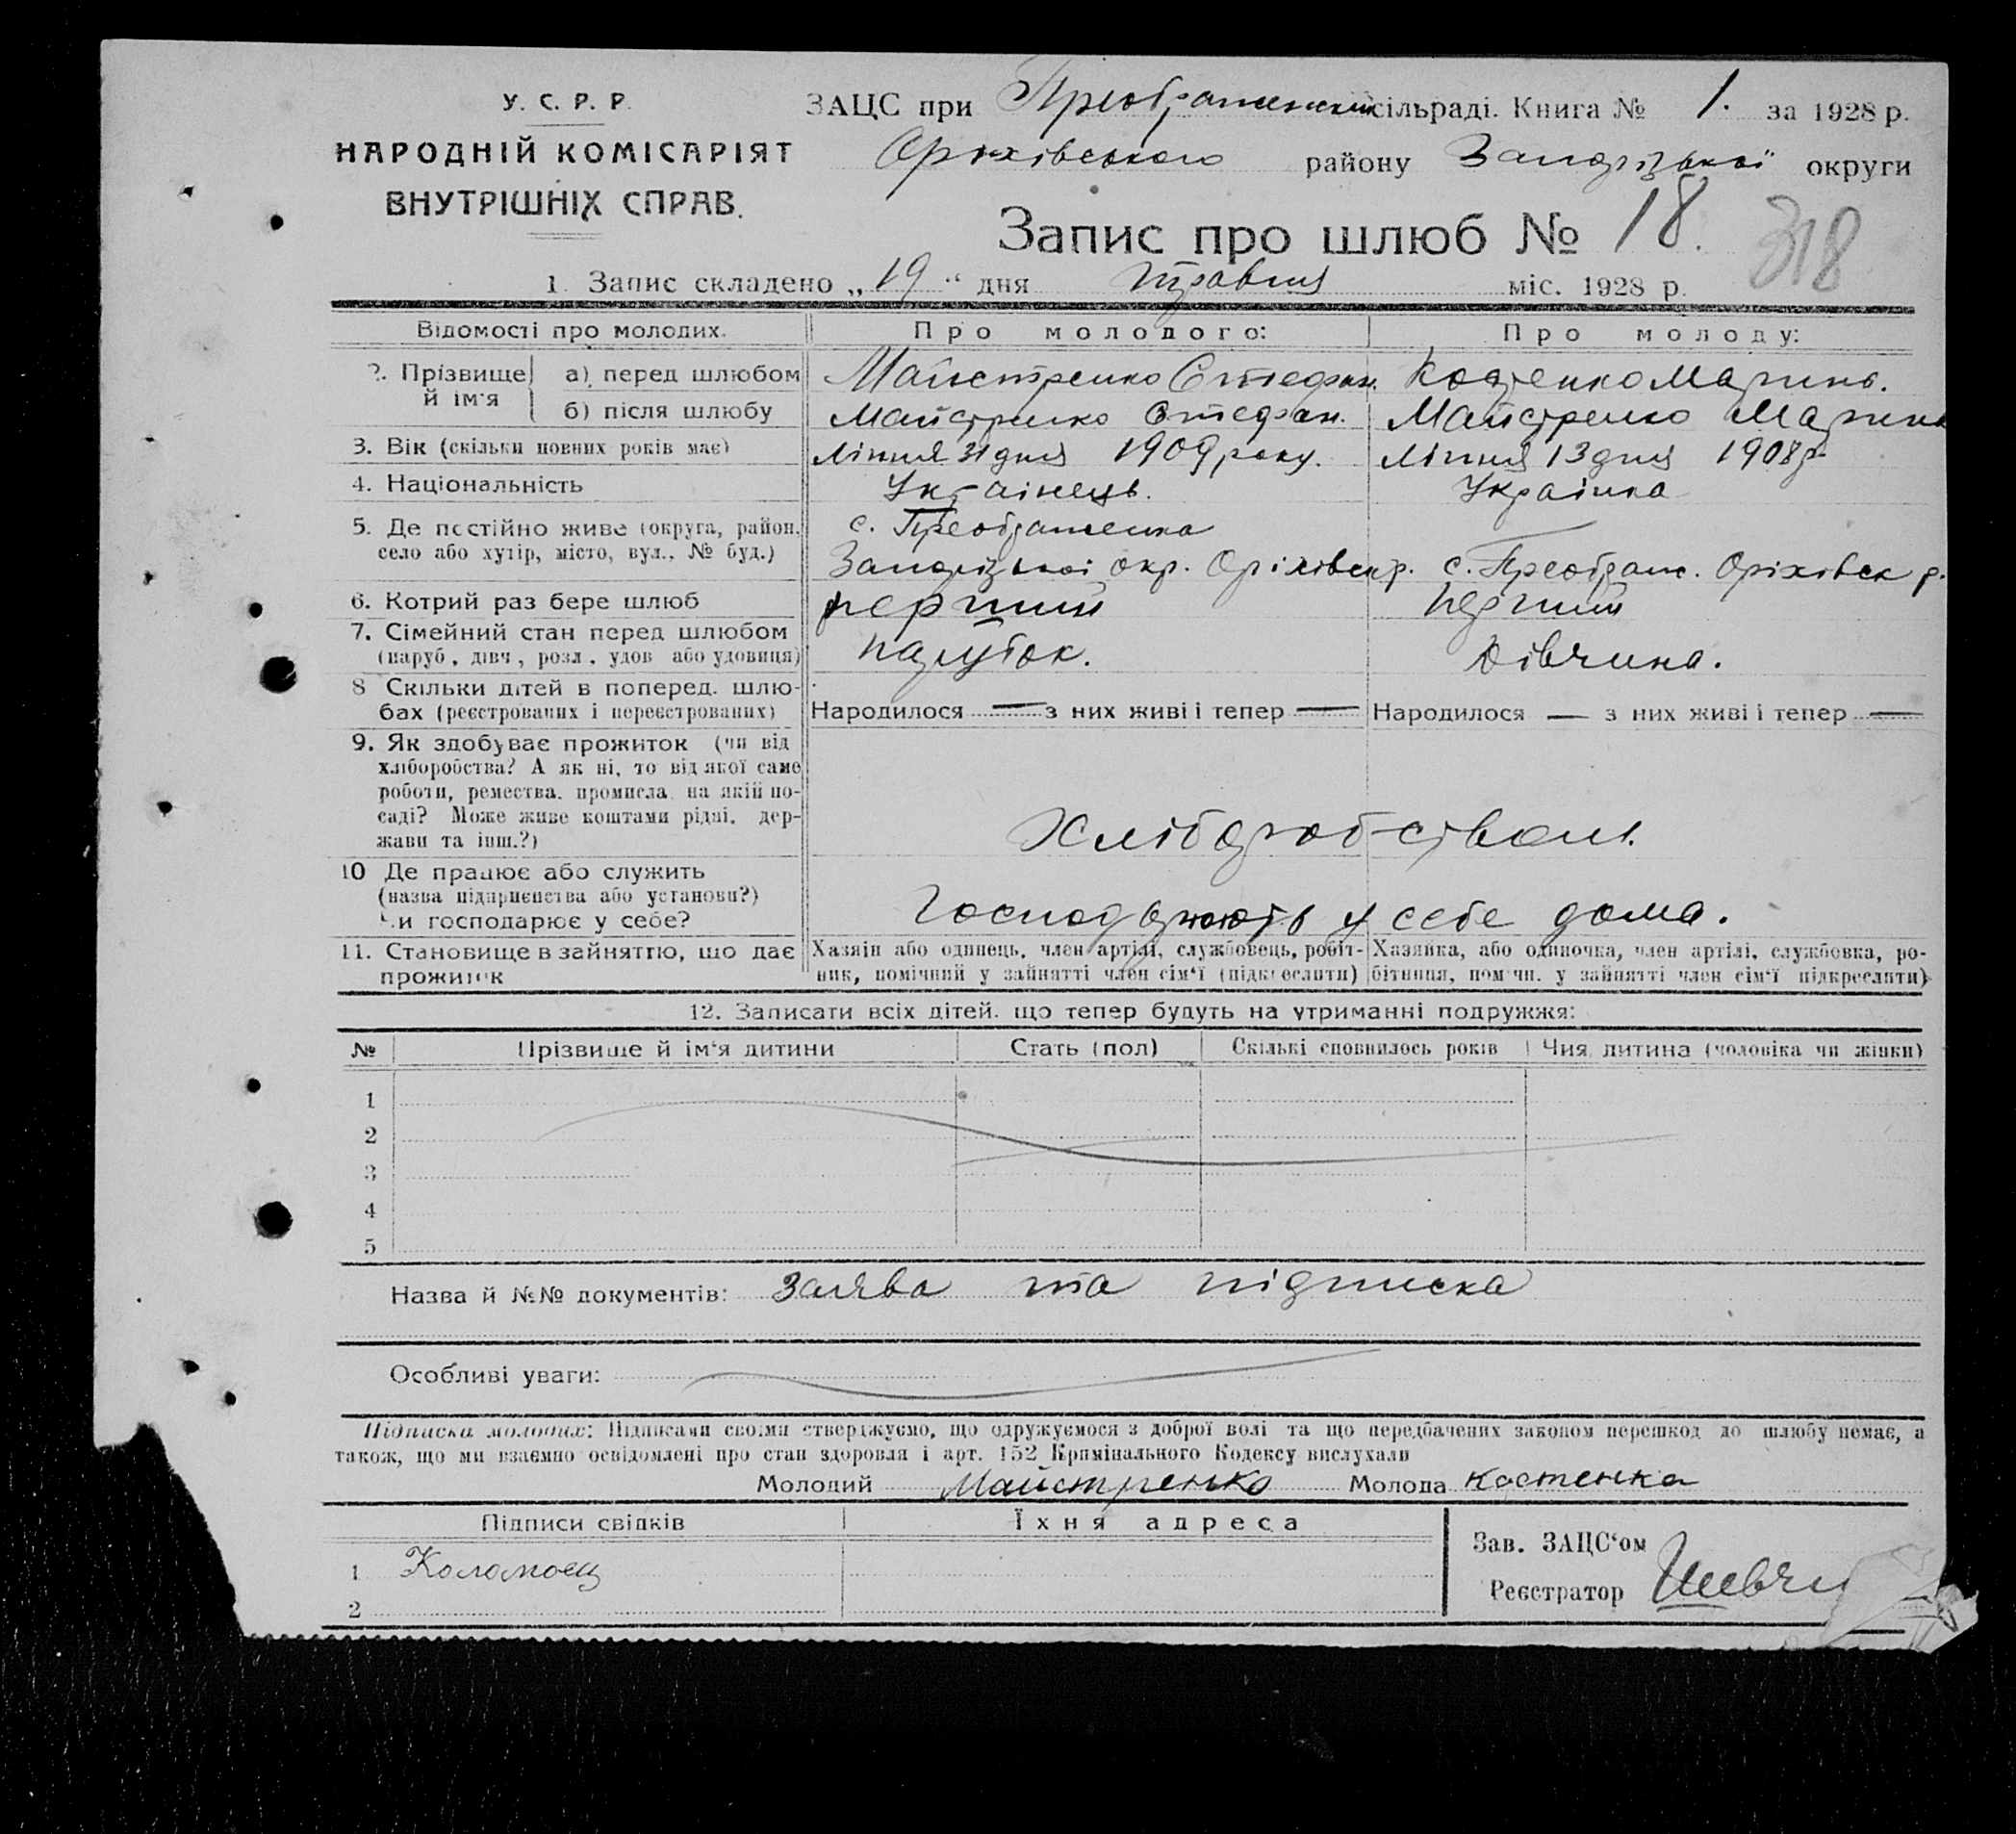 У. С. Р. Р.
НАРОДНІЙ КОМІСАРІЯТ
ВНУТРІШНІХ СПРАВ.
ЗАЦС при Преображенській сільраді. Книга № 1. за 1928 р.
Оріхівського району Запорізької округи
Запис про шлюб № 18.
318
1. Запис складено „19“ дня травня міс. 1928 р.
Відомості про молодих. Про молодого: Про молоду:
2. Прізвище й ім'я а) перед шлюбом Майстренко Стефан. Марина.
б) після шлюбу Майстренко Стефан. Майстренко Марина
3. Вік (скільки повних років має) Липня 31 дня 1909 року. Липня 13 дня 1908 р.
4. Національність Українець. Українка
5. Де постійно живе (округа, район, село або хутір, місто, вул., № буд.) с. Преображенка
Запорізької окр. Оріхівськ р. с. Преображ. Оріхівск р.
6. Котрий раз бере шлюб перший перший
7. Сімейний стан перед шлюбом парубок. Дівчина.
(паруб., дівч., розл., удов. або удовиця)
8 Скільки дітей в поперед. шлю-
бах (реєстрованих і нереєстрованих) Народилося — з них живі і тепер — Народилося — з них живі і тепер —
9. Як здобуває прожиток (чи від
хліборобства? А як ні, то від якої саме
роботи, ремества, промисла, на якій по-
саді? Може живе коштами рідні, дер-
жави та інш.?) Хліборобством.
10 Де працює або служить
(назва підприємства або установи?)
Чи господарює у себе? Господарюють у себе дома.
11. Становище в зайняттю, що дає Хазяїн або одинець, член артілі, службовець, робіт- Хазяйка, або одиночка, член артілі, службовка, ро-
прожиток ник, помічний у зайнятті член сім'ї (підкреслити) бітниця, помічн. у зайнятті член сім'ї підкреслити)
12. Записати всіх дітей, що тепер будуть на утриманні подружжя:
№ Прізвище й ім'я дитини Стать (пол) Скількі сповнилось років Чия дитина (чоловіка чи жінки)
1
2
3
4
5
Назва й №№ документів: Заява та підписка
Особливі уваги:
Підписка молодих: Підписами своїми стверджуємо, що одружуємося з доброї волі та що передбачених законом перешкод до шлюбу немає, а
також, що ми взаємно освідомлені про стан здоровля і арт. 152 Кримінального Кодексу вислухали
Молодий Майстренко Молода Костенка
Підписи свідків Їхня адреса
Зав. ЗАЦС‘ом
1 Коломоец
Реєстратор
2